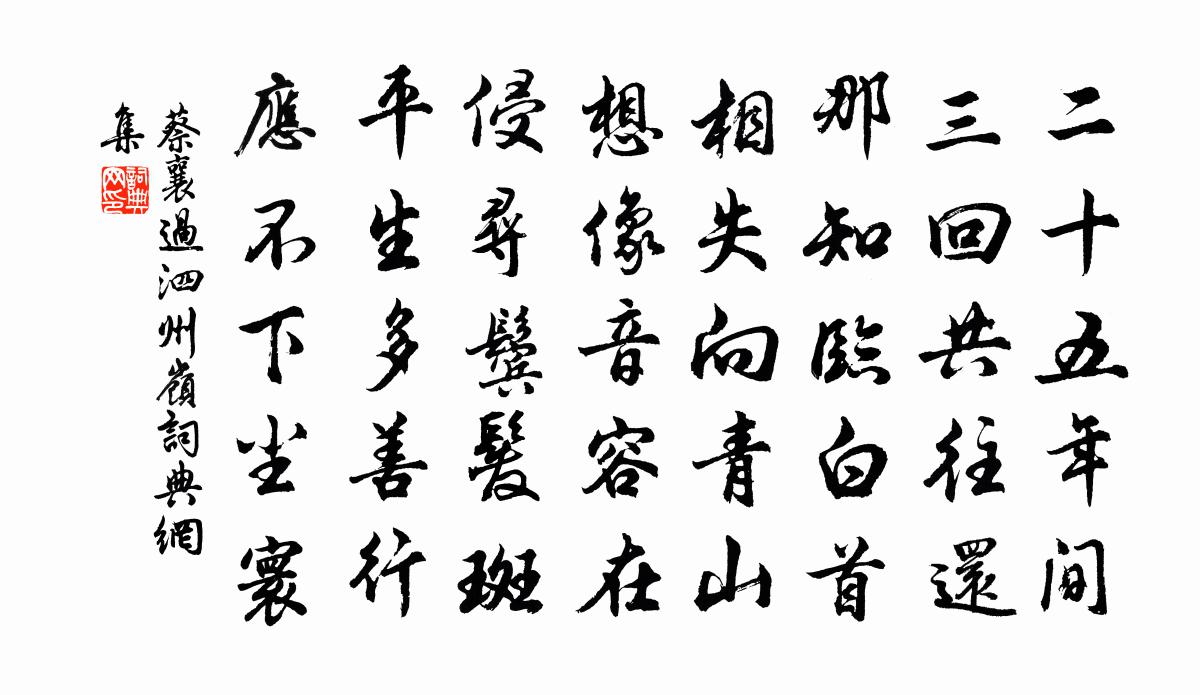 二十五年间
三回共往還
那知臨白首
相失向青山
想像音容在
侵尋鬢髮斑
平生多善行
應不下尘寰
蔡襄過泗州嶺詞典網
集
詞典
网印